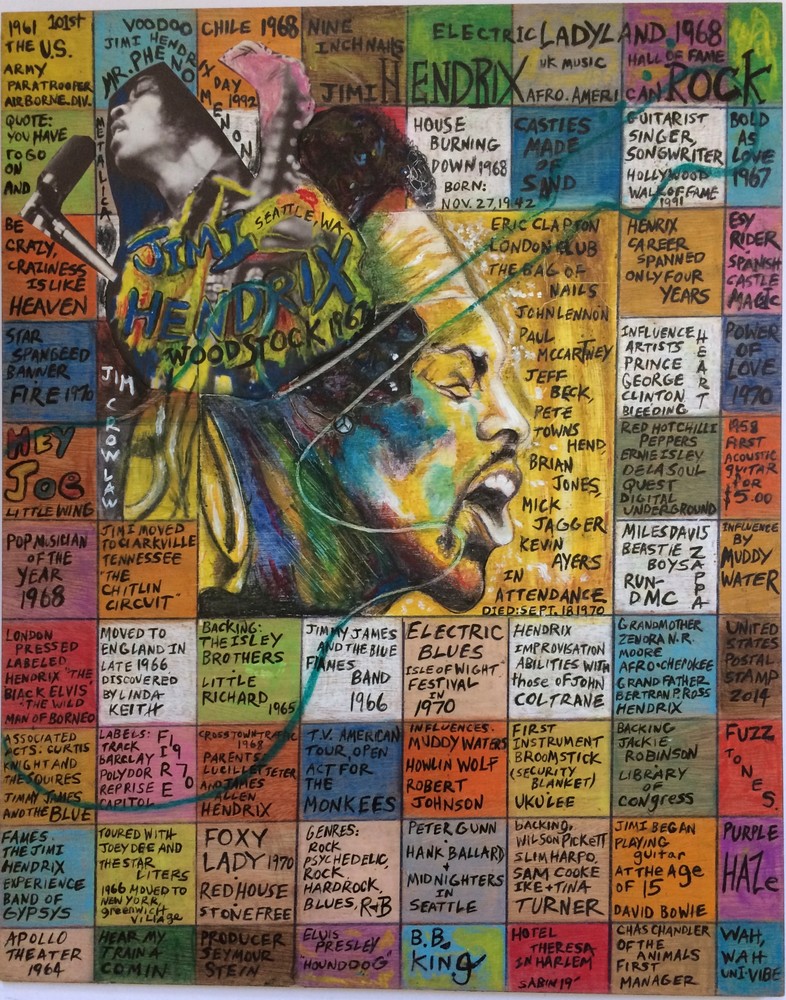 1961 101st
THE U.S.
ARMY
PARATROOPER
AIRBORNE.DIV.
VOODOO
JIMI HENDRIX
MR. PHENOMENON
DAY
1992
CHILE 1968
NINE
INCH NAILS
ELECTRIC LADYLAND 1968
UK MUSIC
HALL OF FAME
JIMI HENDRIX
AFRO. AMERICAN ROCK
QUOTE:
YOU HAVE
TO GO
ON
AND
METALICA
HOUSE
BURNING
DOWN 1968
BORN:
NOV. 27, 1942
CASTLES
MADE
OF
SAND
GUITARIST
SINGER,
SONGWRITER
HOLLYWOOD
WALK OF FAME
1991
BOLD
AS
LOVE
1967
BE
CRAZY,
CRAZINESS
IS LIKE
HEAVEN
SEATTLE, WA
JIMI
HENDRIX
WOODSTOCK
ERIC CLAPTON
LONDON CLUB
THE BAG OF
NAILS
JOHN LENNON
PAUL
McCARTNEY
JEFF
BECK,
PETE
TOWNS
HEND,
BRIAN
JONES,
MICK
JAGGER
KEVIN
AYERS
IN
ATTENDANCE
DIED: SEPT. 18 1970
HENRIX
CAREER
SPANNED
ONLY FOUR
YEARS
ESY
RIDER
SPANISH
CASTLE
MAGIC
STAR
SPANGEED
BANNER
FIRE 1970
JIM CROW LAW
INFLUENCE
ARTISTS
PRINCE
GEORGE
CLINTON
BLEEDING
HEART
POWER
OF
LOVE
1970
HEY
JOE
LITTLE WING
RED HOT CHILLI
PEPPERS
ERNIE ISLEY
DE LA SOUL
QUEST
DIGITAL
UNDERGROUND
1958
FIRST
ACOUSTIC
guitar
FOR
$5.00
POP MUSICIAN
OF THE
YEAR
1968
JIMI MOVED
TO CLARKVILLE
TENNESSEE
"THE
CHITLIN
CIRCUIT"
MILES DAVIS
BEASTIE
BOYS
RUN-
DMC
ZAPPA
INFLUENCE
BY
MUDDY
WATER
LONDON
PRESSED
LABELED
HENDRIX "THE
BLACK ELVIS"
"THE WILD
MAN OF BORNEO
MOVED TO
ENGLAND IN
LATE 1966
DISCOVERED
BY LINDA
KEITH
BACKING:
THE ISLEY
BROTHERS
LITTLE
RICHARD
1965
JIMMY JAMES
AND THE BLUE
FLAMES
BAND
1966
ELECTRIC
BLUES
ISLE OF WIGHT
FESTIVAL
IN
1970
HENDRIX
IMPROVISATION
ABILITIES WITH
those OF JOHN
COLTRANE
GRANDMOTHER
ZENORA N.R.
MOORE
AFRO-CHEROKEE
GRAND FATHER
BERTRAN P. ROSS
HENDRIX
UNITED
STATES
POSTAL
STAMP
2014
ASSOCIATED
ACTS: CURTIS
KNIGHT AND
THE SQUIRES
JIMMY JAMES
AND THE BLUE
LABELS:
TRACK
BARCLAY
POLYDOR
REPRISE
CAPITOL
FIRE
1970
CROSSTOWN TRAFFIC
1968
PARENTS
LUCILLE JETER
AND JAMES
ALLEN
HENDRIX
T.V. AMERICAN
TOUR, OPEN
ACT FOR
THE
MONKEES
INFLUENCES.
MUDDY WATERS
HOWLIN WOLF
ROBERT
JOHNSON
FIRST
INSTRUMENT
BROOMSTICK
(SECURITY
BLANKET)
UKULEE
BACKING
JACKIE
ROBINSON
LIBRARY
OF
CONgRESS
FUZZ
TONES.
FAMES.
THE JIMI
HENDRIX
EXPERIENCE
BAND OF
GYPSYS
TOURED WITH
JOEY DEE AND
THE STAR
LITERS
1966 MOVED TO
NEW YORK,
greenwich
Village
FOXY
LADY 1970
RED HOUSE
STONE FREE
GENRES:
ROCK
PSYCHEDELIC,
ROCK.
HARDROCK,
BLUES, R&B
PETER GUNN
HANK BALLARD
+
MIDNIGHTERS
IN
SEATTLE
BACKING.
WILSON PICKETT
SLIM HARPO,
SAM COOKE
IKE + TINA
TURNER
JIMI BEGAN
PLAYING
guitar
AT THE AGE
OF 15
DAVID BOWIE
PURPLE
HAZE
APOLLO
THEATER
1964
HEAR MY
TRAIN A
COMIN
PRODUCER
SEYMOUR
STEIN
ELVIS
PRESLEY
"HOUNDDOG"
B.B.
KINg
HOTEL
THERESA
IN HARLEM
SABIN 19"
CHAS CHANDLER
OF THE
ANIMALS
FIRST
MANAGER
WAH,
WAH
UNI-VIBE